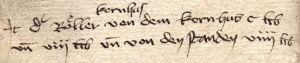 kornhus
It d Röller von dem kornhus c lb
vn viii lb vn von den Panden viiii lb